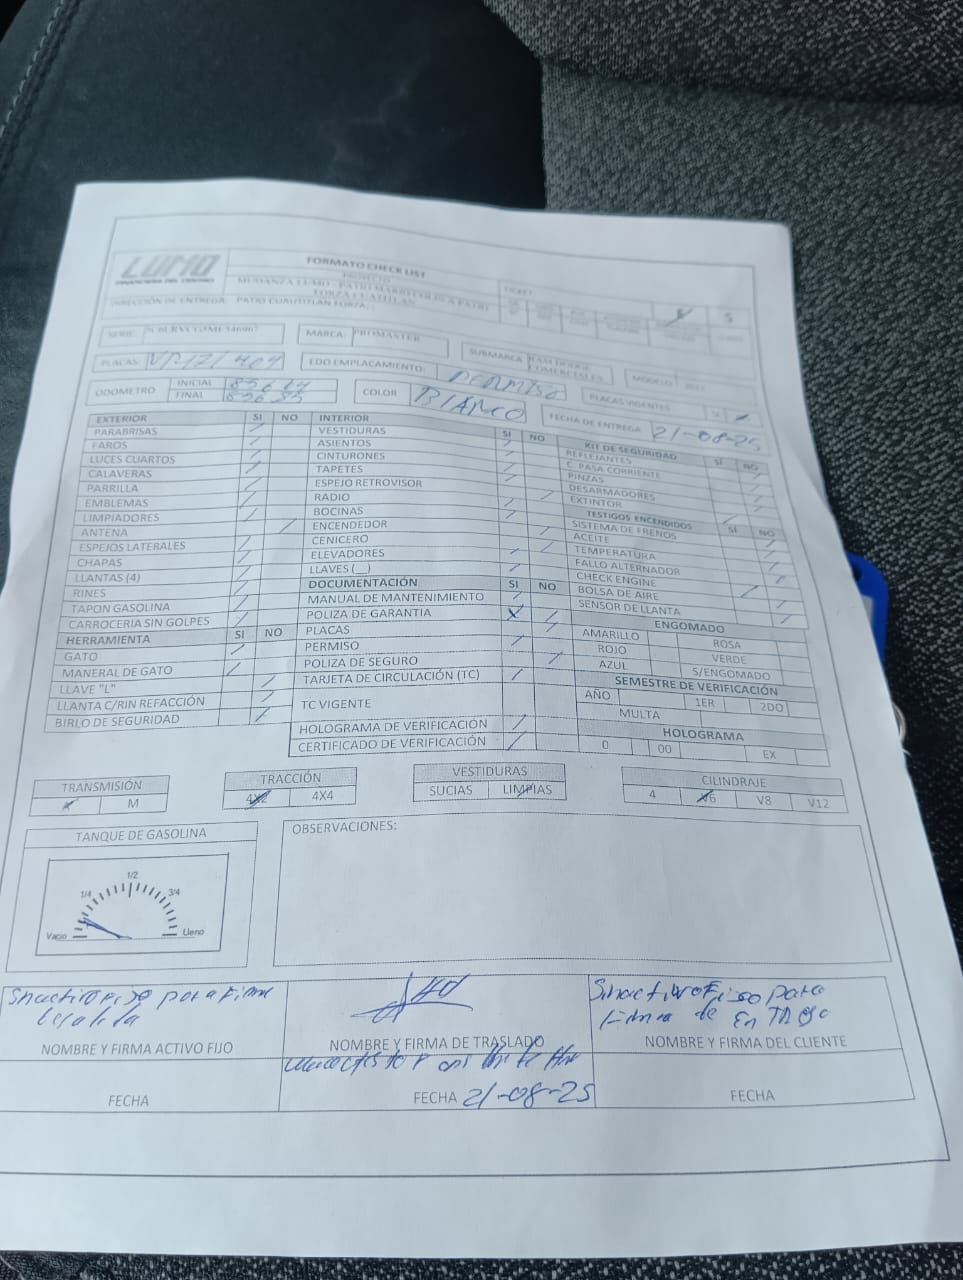 LUMO
FINANCIERA DEL CENTRO
FORMATO CHECK LIST
PROYECTO
MUDANZA LUMO - PATIO MARRUECOS A PATIO
FORZA CUATITLAN
DIRECCIÓN DE ENTREGA: PATIO CUAUTITLAN FORZA
TICKET
SERIE:
MARCA: PROMASTER
SUBMARCA RAM DODGE COMERCIALES
MODELO
PLACAS:
EDO EMPLACAMIENTO: PERMISO
PLACAS VIGENTES
ODOMETRO INICIAL
FINAL
COLOR BLANCO
FECHA DE ENTREGA 21-08-25
EXTERIOR SI NO
PARABRISAS
FAROS
LUCES CUARTOS
CALAVERAS
PARRILLA
EMBLEMAS
LIMPIADORES
ANTENA
ESPEJOS LATERALES
CHAPAS
LLANTAS (4)
RINES
TAPON GASOLINA
CARROCERIA SIN GOLPES
HERRAMIENTA SI NO
GATO
MANERAL DE GATO
LLAVE "L"
LLANTA C/RIN REFACCIÓN
BIRLO DE SEGURIDAD
INTERIOR SI NO
VESTIDURAS
ASIENTOS
CINTURONES
TAPETES
ESPEJO RETROVISOR
RADIO
BOCINAS
ENCENDEDOR
CENICERO
ELEVADORES
LLAVES (__)
DOCUMENTACIÓN SI NO
MANUAL DE MANTENIMIENTO
POLIZA DE GARANTIA
PLACAS
PERMISO
POLIZA DE SEGURO
TARJETA DE CIRCULACIÓN (TC)
TC VIGENTE
HOLOGRAMA DE VERIFICACIÓN
CERTIFICADO DE VERIFICACIÓN
KIT DE SEGURIDAD SI NO
REFLEJANTES
C. PASA CORRIENTE
PINZAS
DESARMADORES
EXTINTOR
TESTIGOS ENCENDIDOS SI NO
SISTEMA DE FRENOS
ACEITE
TEMPERATURA
FALLO ALTERNADOR
CHECK ENGINE
BOLSA DE AIRE
SENSOR DE LLANTA
ENGOMADO
AMARILLO ROSA
ROJO VERDE
AZUL S/ENGOMADO
SEMESTRE DE VERIFICACIÓN
AÑO 1ER 2DO
MULTA
HOLOGRAMA
0 00 EX
TRANSMISIÓN
M
TRACCIÓN
4X2 4X4
VESTIDURAS
SUCIAS LIMPIAS
CILINDRAJE
4 V6 V8 V12
TANQUE DE GASOLINA
1/4 1/2 3/4
Vacio Lleno
OBSERVACIONES:
NOMBRE Y FIRMA ACTIVO FIJO
NOMBRE Y FIRMA DE TRASLADO
NOMBRE Y FIRMA DEL CLIENTE
FECHA
FECHA 21-08-25
FECHA